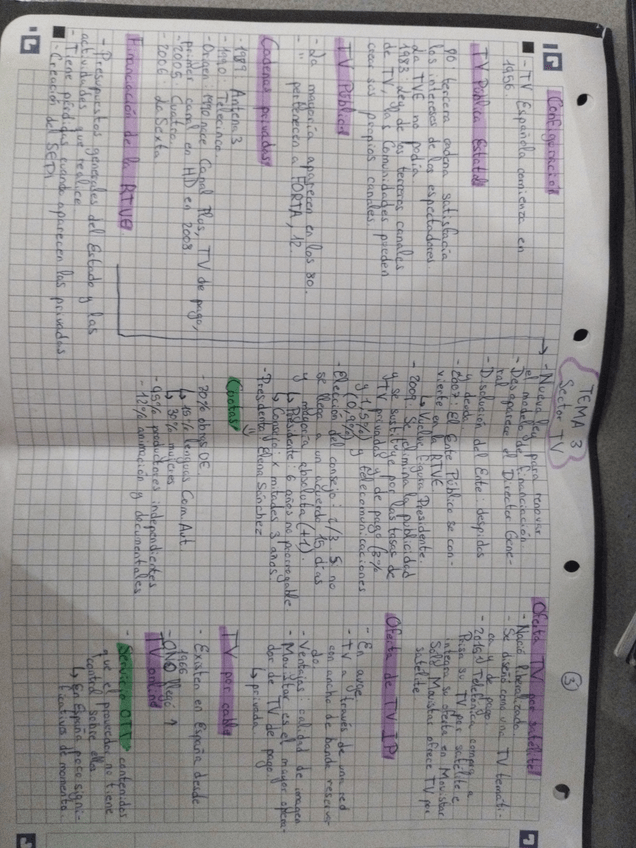 TEMA 3
Sector TV
3
Configuración
- TV Española comienza en
1956.
TV Pública Estatal
90 tercera cadena satisfacía
los intereses de los espectadores
La TVE no podía.
1983 Ley de los terceros canales
de TV, las comunidades pueden
crear sus propios canales.
TV Pública
- La mayoría aparecen en los 80.
- " pertenecen a FORTA, 12.
Cadenas privadas
- 1989: Antena 3
- 1990: Telecinco
- Origen 1990 nace Canal Plus, TV de pago,
primer canal en HD en 2008
- 2005: Cuatro
- 2006: la Sexta
Financiación de la RTVE
- Presupuestos generales del Estado y las
actividades que realice
- Tiene pérdidas cuando aparecen las privadas
- Creación del SEPI
→ - Nueva ley para renovar
el modelo de financiación
- Desaparece el Director Gene-
ral
- Disolución del Ente: despidos
y deuda.
- 2007: El Ente Público se con-
vierte en la RTVE
↳ Vuelve figura Presidente
- 2009: Se elimina la publicidad
y se sustituye por las tasas de
TV privadas y de pago (3%
y 1,5%) y telecomunicaciones
(0,9%)
- Elección del consejo: 2/3. Si no
se llega a un acuerdo, 15 días
y mayoría absoluta (+1).
↳ Presidente: 6 años no prorrogable
↳ Consejo x mitades 3 años
- Presidenta: Elena Sánchez
Cuotas
- 70% obras OE.
↳ 15% lenguas Com. Aut
↳ 30% mujeres
- 45% productores independientes
- 12% animación y documentales
Oferta TV por satélite
- Nació liberalizada
- Se diseñó como una TV temáti-
ca de pago
- 2015: Telefónica compra a
Prisa su TV por satélite e
integra su oferta en Movistar
- Solo Movistar ofrece TV por
satélite
Oferta de TV IP
- En auge
- TV a través de una red
con ancho de banda reserva-
do
- Ventajas calidad de imagen
- Movistar es el mayor opera-
dor de TV de pago.
↳ privada
TV por cable
- Existen en España desde
- ONO llegó
TV online
- Servicio OTT: contenidos
que el proveedor no tiene
control sobre ellos
↳ En España poco signi-
ficativos de momento